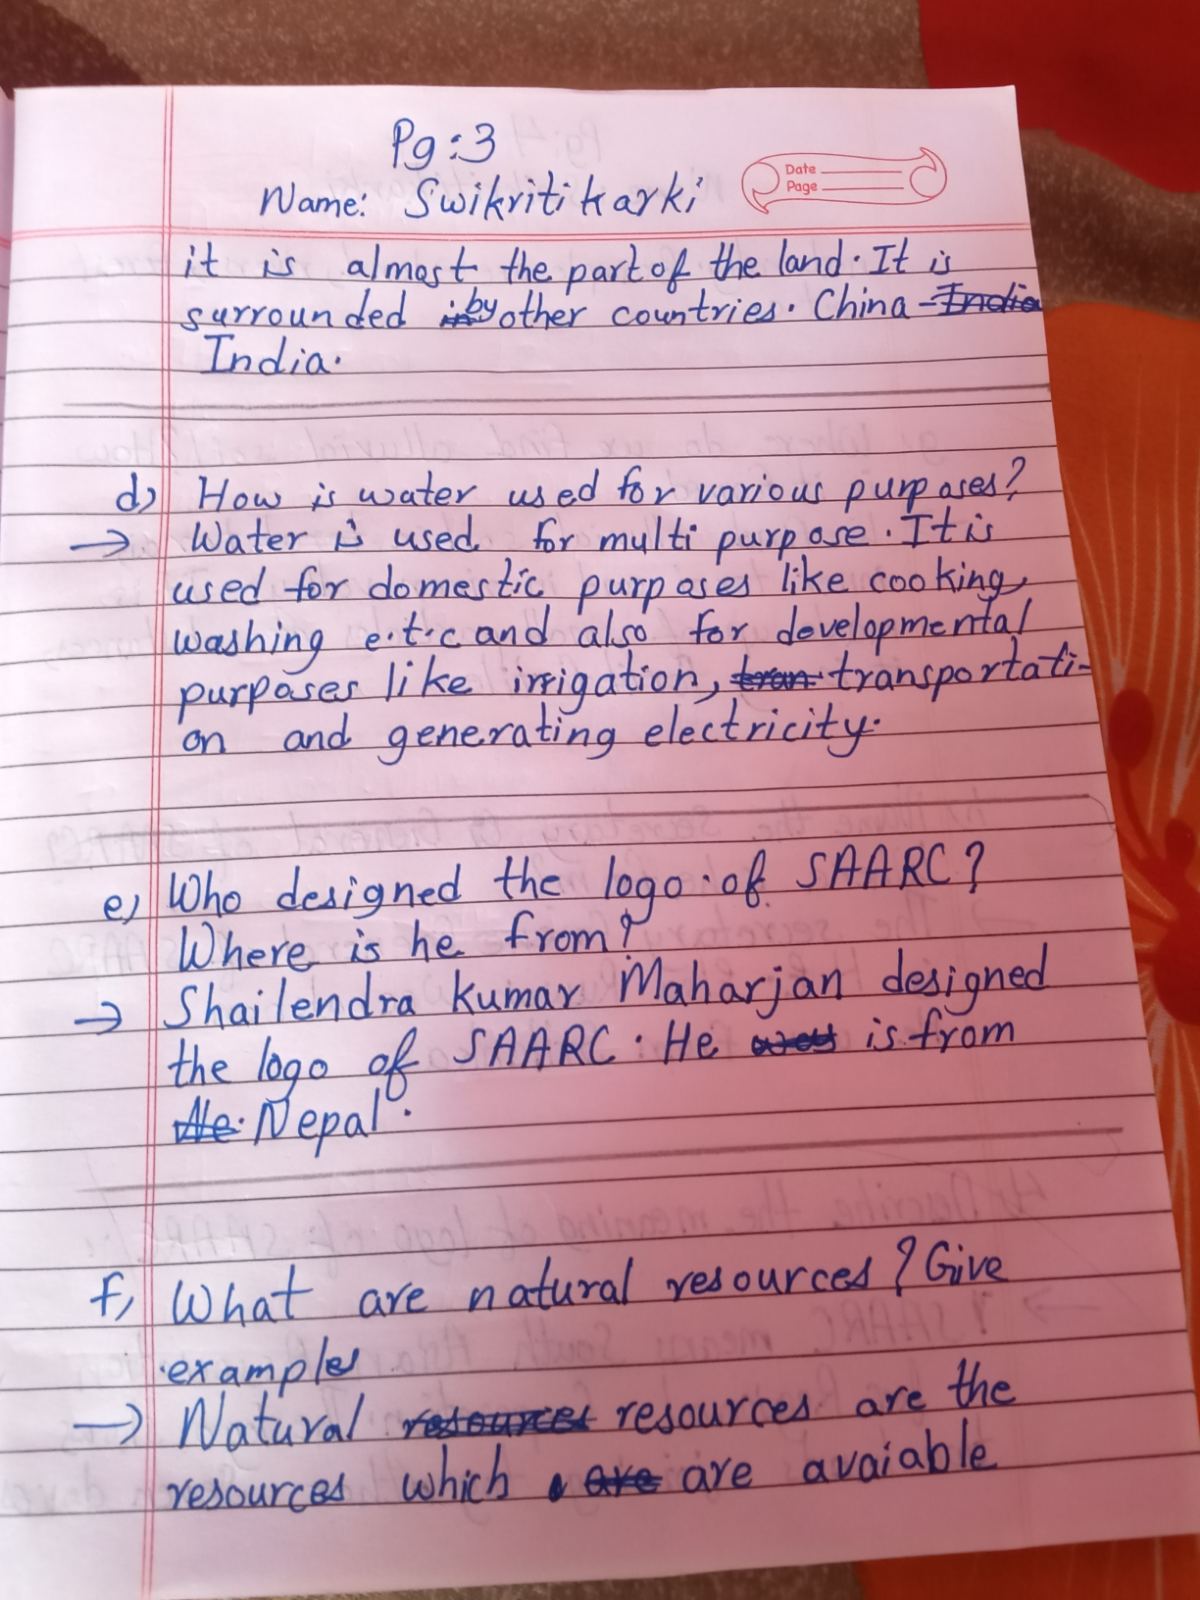 Pg:3
Name: Swikriti karki
Date
Page
it is almost the part of the land. It is
surrounded in by other countries. China India
India.
d) How is water used for various purposes?
→ Water is used for multi purpose. It is
used for domestic purposes like cooking,
washing e.t.c and also for developmental
purposes like irrigation, tran transportati-
on and generating electricity.
e) Who designed the logo of SAARC?
Where is he from?
→ Shailendra kumar Maharjan designed
the logo of SAARC. He was is from
the Nepal.
f) What are natural resources? Give
examples
→ Natural resources resources are the
resources which are are avaiable